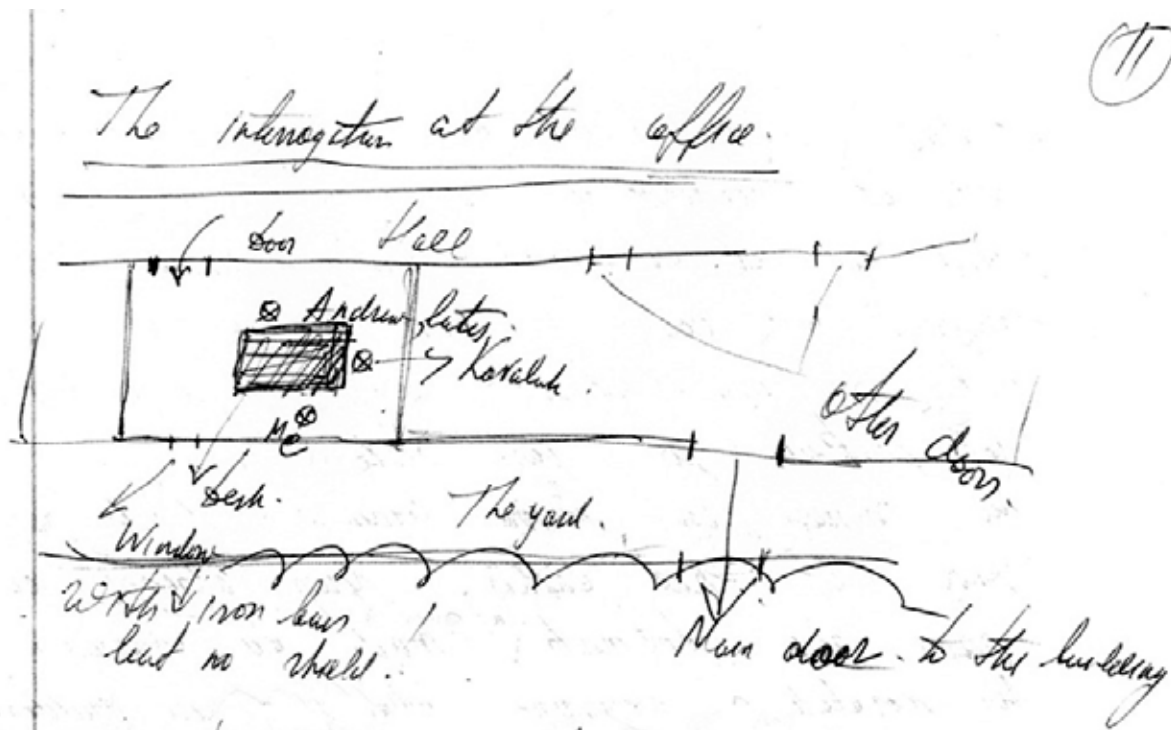 11
The interrogation at the office.
Door Hall
Andrew, later.
Kovaluk.
Me
Other doors.
Desk.
The yard.
Window
With iron bars
but no
Main door to the building